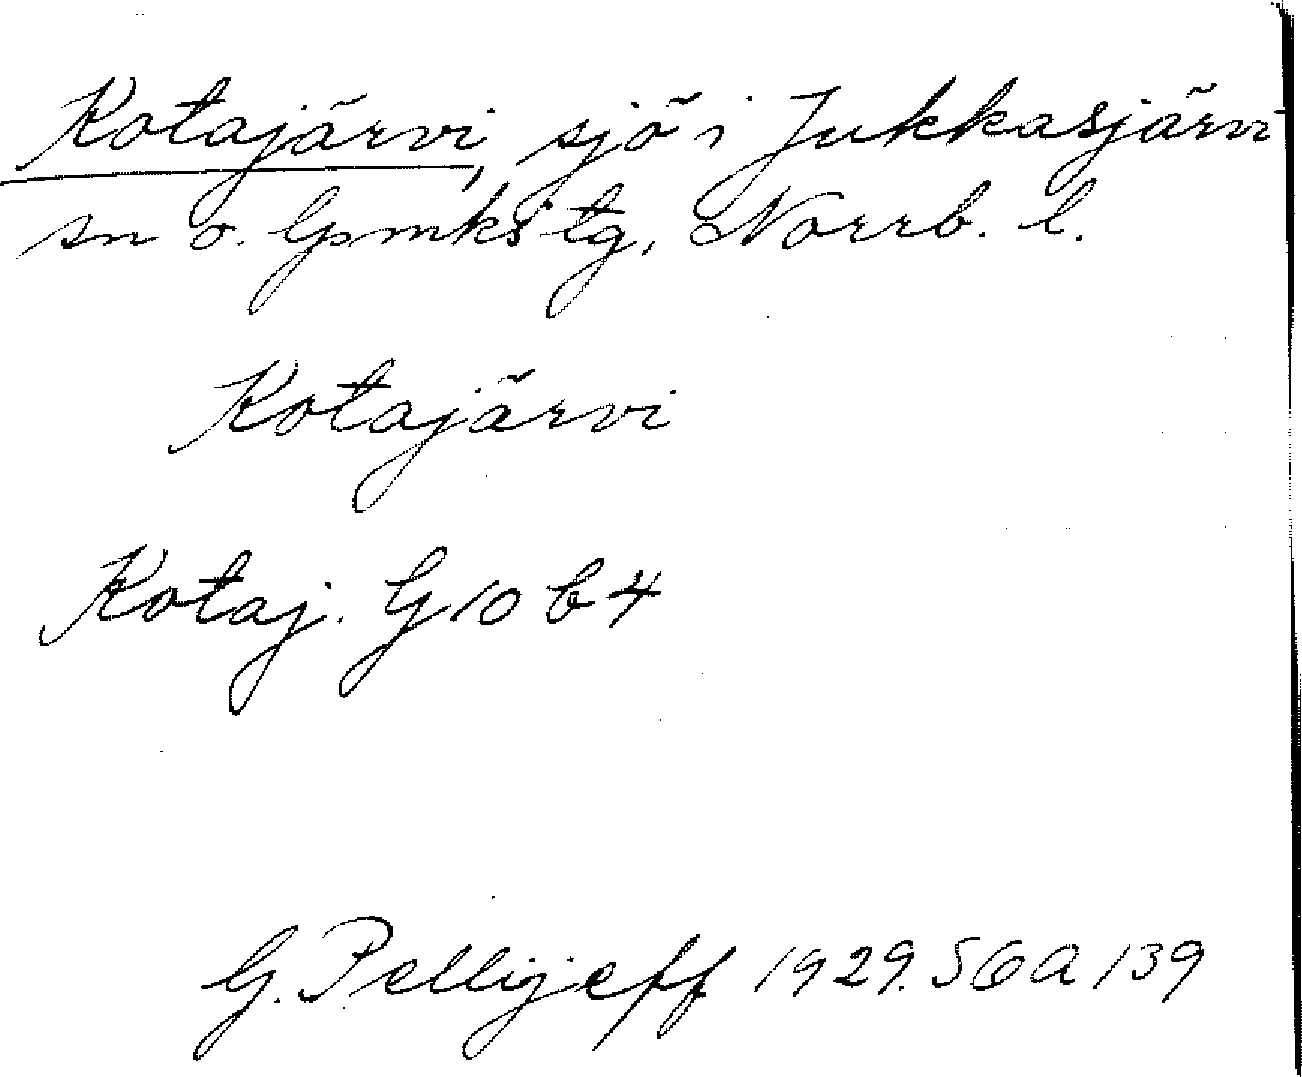 Kotajärvi, sjö i Jukkasjärvi
sn o. lpmkstg, Norrb. l.
Kotajärvi
Kotaj. G 10 b 4
G. Pellijeff 1929. S6a 139